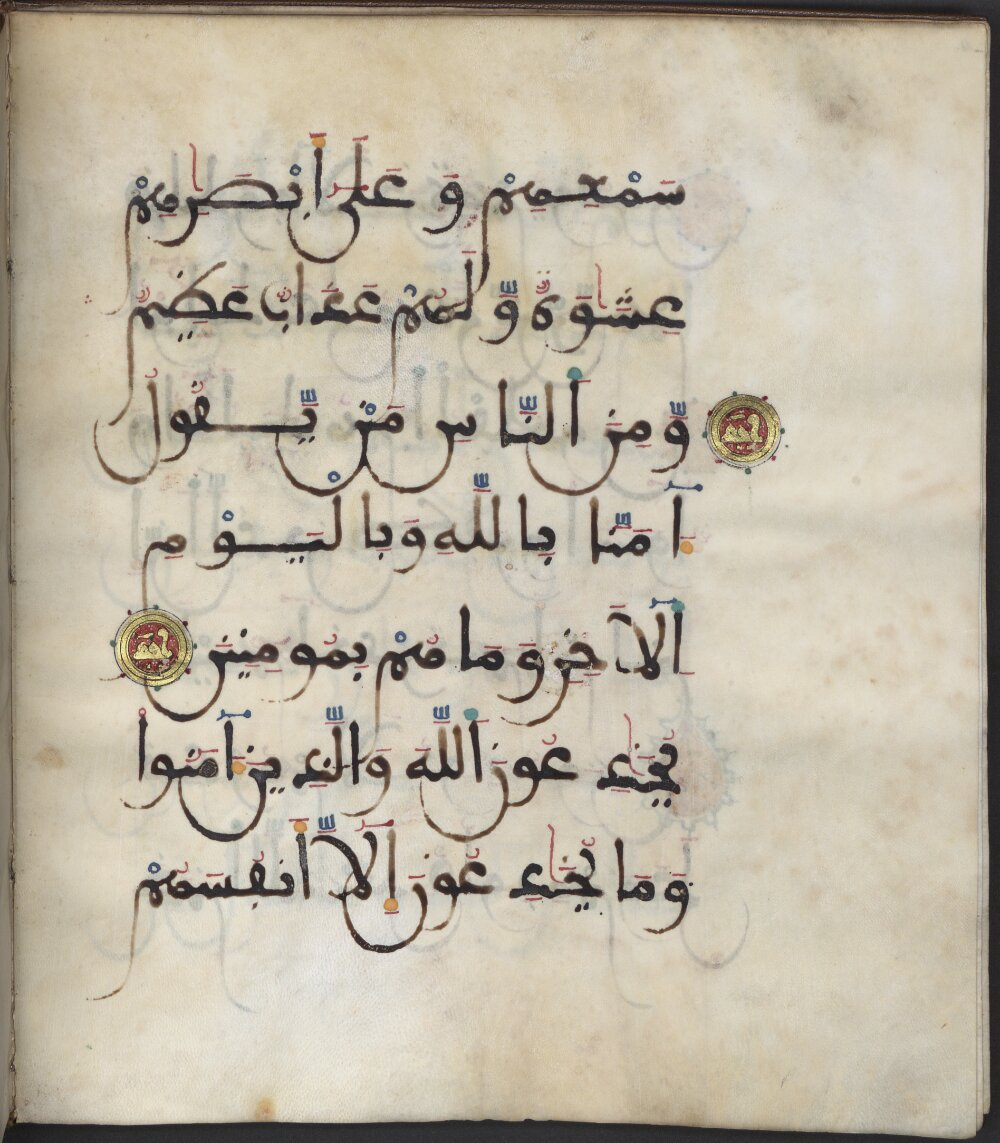 سَمْعِهِمْ وَعَلَىٰ أَبْصَٰرِهِمْ
غِشَٰوَةٌ وَّلَهُمْ عَذَابٌ عَظِيمٌ
وَّمِنَ اَلنَّاسِ مَنْ يَّقُولُ
ءَامَنَّا بِاللَّهِ وَبِالْيَوْمِ
اَلَاخِرِ وَمَا هُمْ بِمُومِنِينَ
يُخَٰدِعُونَ اَللَّهَ وَالَّذِينَ ءَامَنُواْ
وَمَا يُخَٰدِعُونَ إِلَّا أَنفُسَهُمْ